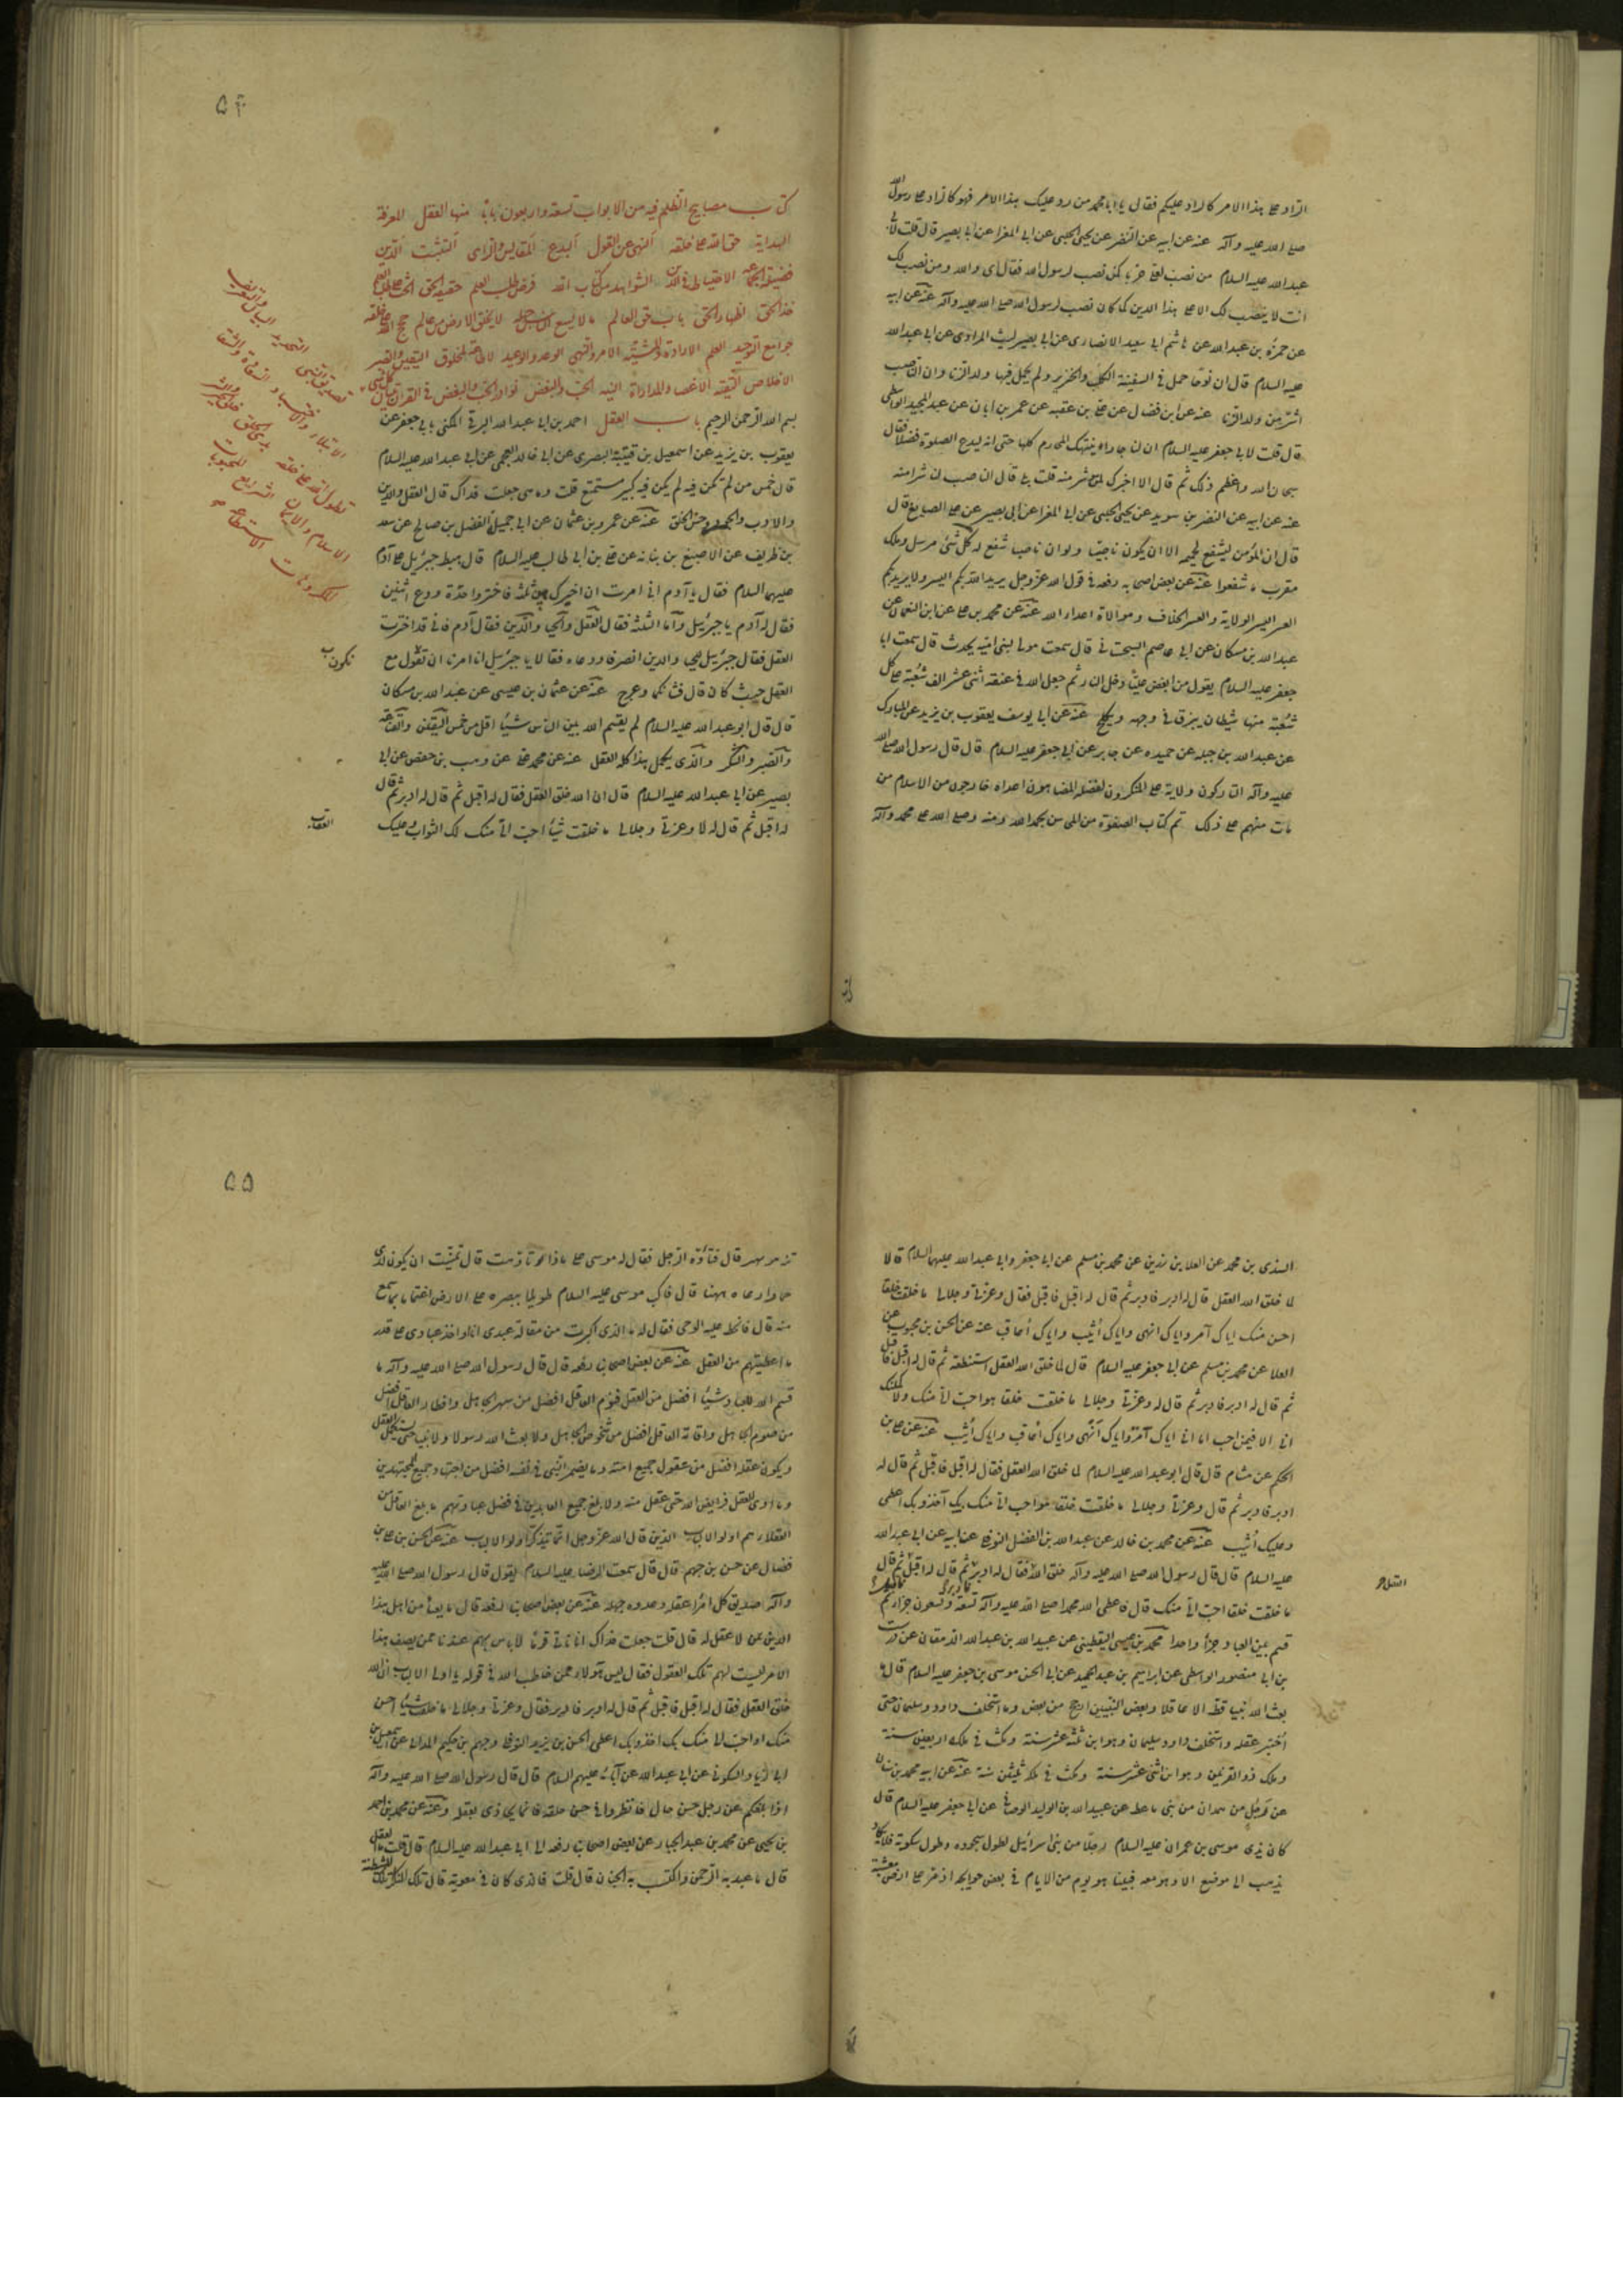 الراد على هذا الامر كالراد عليكم فقال يا ابا محمد من رد عليك هذا الامر فهو كالراد على رسول الله
صلى الله عليه وآله عنه عن ابيه عن النضر عن يحيى الحلبى عن ابى المغرا عن ابى بصير قال قلت لابى
عبد الله عليه السلام من نصب لعلى حربا كمن نصب لرسول الله فقال اى والله ومن نصب لك
انت لا ينصب لك الا على هذا الدين كما كان نصب لرسول الله صلى الله عليه وآله عنه عن ابيه
عن حمزة بن عبد الله عن هاشم ابى سعيد الانصارى عن ابى بصير ليث المرادى عن ابى عبد الله
عليه السلام قال ان نوحا حمل فى السفينة الكلب والخنزير ولم يحمل فيها ولد الزنا وان الناصب
اشر من ولد الزنا عنه عن ابن فضال عن على بن عقبه عن عمر بن ابان عن عبد الحميد الوابشى
قال قلت لابى جعفر عليه السلام ان لنا جارا ينتهك المحارم كلها حتى انه ليدع الصلوة فضلا فقال
سبحان الله واعظم ذلك ثم قال الا اخبرك بمن هو شر منه قلت بلى قال الناصب لنا شر منه
عنه عن ابيه عن النضر بن سويد عن يحيى الحلبى عن ابى المغرا عن ابى بصير عن على الصايغ قال
قال ان المؤمن ليشفع لحميمه الا ان يكون ناصبا ولو ان ناصبا شفع له كل نبى مرسل وملك
مقرب ما شفعوا عنه عن بعض اصحابه رفعه فى قول الله عز وجل يريد الله بكم اليسر ولا يريد بكم
العسر اليسر الولاية والعسر الخلاف وموالاة اعداء الله عنه عن محمد بن على عن ابن النعمان عن
عبد الله بن مسكان عن ابى عاصم السجستانى قال سمعت مولى لبنى اميه يحدث قال سمعت ابا
جعفر عليه السلام يقول من ابغض عليا دخل النار ثم جعل الله فى عنقه اثنى عشر الف شعبة على كل
شعبة منها شيطان يبزق فى وجهه ويكلح عنه عن ابى يوسف يعقوب بن يزيد عن المبارك
عن عبد الله بن جبله عن حميده عن جابر عن ابى جعفر عليه السلام قال قال رسول الله صلى الله
عليه وآله التاركون ولاية على المنكرون لفضله المضاهون اعداءه خارجون من الاسلام من
مات منهم على ذلك تم كتاب الصفوة من المحاسن بحمد الله ومنه وصلى الله على محمد وآله
۵۴
كتاب مصابيح الظلم فيه من الابواب تسعة واربعون بابا منها العقل المعرفة
الهداية حق الله على خلقه النهى عن القول البدع المقاييس والراى التثبت الدين
فضيلة الجماعة الاحتياط فى الدين الشواهد من كتاب الله فرض طلب العلم حقيقة الحق الحث على طلب العلم
خذ الحق اظهار الحق باب حق العالم ما لا يسع الناس جهله لا يخلو الارض من عالم حجج الله على خلقه
جوامع التوحيد العلم الارادة والمشية الامر والنهى الوعد والوعيد لا طاعة لمخلوق اليقين والصبر
الاخلاص التقية الاغضاء والمداراة النيه الحب والبغض نوادر الحب والبغض فى القران تبيان كل شىء
بسم الله الرحمن الرحيم باب العقل احمد بن ابى عبد الله البرقى المكنى بابى جعفر عن
يعقوب بن يزيد عن اسمعيل بن قتيبة البصرى عن ابى خالد العجمى عن ابى عبد الله عليه السلام
قال خمس من لم تكن فيه لم يكن فيه كثير مستمتع قلت وما هى جعلت فداك قال العقل والدين
والادب والجود وحسن الخلق عنه عن عمرو بن عثمان عن ابى جميلة المفضل بن صالح عن سعد
بن طريف عن الاصبغ بن نباته عن على بن ابى طالب عليه السلام قال هبط جبرئيل على آدم
عليهما السلام فقال يا آدم انى امرت ان اخيرك بين ثلثة فاختر واحدة ودع اثنتين
فقال له آدم يا جبرئيل وما الثلثة فقال العقل والحيا والدين فقال آدم فانى قد اخترت
العقل فقال جبرئيل للحيا والدين انصرفا ودعاه فقالا يا جبرئيل انا امرنا ان نكون مع
العقل حيث كان قال فشانكما وعرج عنه عن عثمان بن عيسى عن عبد الله بن مسكان
قال قال ابو عبد الله عليه السلام لم يقسم الله بين الناس شيئا اقل من خمس اليقين والقناعة
والصبر والشكر والذى يكمل هذا كله العقل عنه عن محمد بن على عن وهب بن حفص عن ابى
بصير عن ابى عبد الله عليه السلام قال ان الله خلق العقل فقال له اقبل ثم قال له ادبر ثم قال
له اقبل ثم قال له لا وعزتى وجلالى ما خلقت شيئا احب الى منك لك الثواب وعليك
العقاب
السندى بن محمد عن العلا بن رزين عن محمد بن مسلم عن ابى جعفر وابى عبد الله عليهما السلام قالا
لما خلق الله العقل قال له ادبر فادبر ثم قال له اقبل فاقبل فقال وعزتى وجلالى ما خلقت خلقا
احسن منك اياك آمر واياك انهى واياك أثيب واياك أعاقب عنه عن الحسن بن محبوب عن
العلا عن محمد بن مسلم عن ابى جعفر عليه السلام قال لما خلق الله العقل استنطقه ثم قال له اقبل فاقبل
ثم قال له ادبر فادبر ثم قال له وعزتى وجلالى ما خلقت خلقا هو احب الى منك ولا اكملتك
الا فيمن احب اما انى اياك آمر واياك أنهى واياك أعاقب واياك أثيب عنه عن على بن
الحكم عن هشام قال قال ابو عبد الله عليه السلام لما خلق الله العقل فقال له اقبل فاقبل ثم قال له
ادبر فادبر ثم قال وعزتى وجلالى ما خلقت خلقا هو احب الى منك بك آخذ وبك اعطى
وعليك أثيب عنه عن محمد بن خالد عن عبد الله بن الفضل النوفلى عن ابيه عن ابى عبد الله
عليه السلام قال قال رسول الله صلى الله عليه وآله خلق الله العقل فقال له ادبر فادبر ثم قال له اقبل فاقبل ثم قال
ما خلقت خلقا احب الى منك قال فاعطى الله محمدا صلى الله عليه وآله تسعة وتسعون جزءا ثم
قسم بين العباد جزءا واحدا محمد بن عيسى اليقطينى عن عبيد الله بن عبد الله الدهقان عن درست
بن ابى منصور الواسطى عن ابراهيم بن عبد الحميد عن ابى الحسن موسى بن جعفر عليه السلام قال ما
بعث الله نبيا قط الا عاقلا وبعض النبيين ارجح من بعض وما استخلف داود سليمان حتى
أختبر عقله واستخلف داود سليمان وهو ابن ثلثة عشر سنة ومكث فى ملكه اربعين سنة
وملك ذو القرنين وهو ابن اثنى عشر سنة ومكث فى ملكه ثلثين سنة عنه عن ابيه محمد بن سنان
عن رجل من همدان من بنى واعظ عن عبيد الله بن الوليد الوصافى عن ابى جعفر عليه السلام قال
كان يرى موسى بن عمران عليه السلام رجلا من بنى اسرائيل لطول سجوده وطول سكوته فلا يكاد
يذهب الى موضع الا وهو معه فبينا هو يوم من الايام فى بعض حوايجه اذ مر على ارض معشبة
۵۵
قال فتاوه الرجل فقال له موسى على ماذا تاوهت قال تمنيت ان يكون لربى
حمار ارعاه ههنا قال فاكب موسى عليه السلام طويلا ببصره على الارض اغتماما بما سمع
منه قال فانحط عليه الوحى فقال له ما الذى اكبرت من مقالة عبدى انا اؤاخذ عبادى على قدر
ما اعطيتهم من العقل عنه عن بعض اصحابنا رفعه قال قال رسول الله صلى الله عليه وآله ما
قسم الله للعباد شيئا افضل من العقل فنوم العاقل افضل من سهر الجاهل وافطار العاقل افضل
من صوم الجاهل واقامة العاقل افضل من شخوص الجاهل ولا بعث الله رسولا ولا نبيا حتى يستكمل العقل
ويكون عقله افضل من عقول جميع امته وما يضمر النبى فى نفسه افضل من اجتهاد جميع المجتهدين
وما ادى العقل فرايض الله حتى عقل منه ولا بلغ جميع العابدين فى فضل عبادتهم ما بلغ العاقل من
العقلا هم اولو الالباب الذين قال الله عز وجل انما يتذكر اولو الالباب عنه عن الحسن بن على بن
فضال عن حسن بن جهم قال قال سمعت الرضا عليه السلام يقول قال رسول الله صلى الله عليه
وآله صديق كل امرء عقله وعدوه جهله عنه عن بعض اصحابنا رفعه قال ما يعبأ من اهل هذا
الدين بمن لا عقل له قال قلت جعلت فداك انا ناتى قوما لا باس بهم عندنا ممن يصف هذا
الامر ليست لهم تلك العقول فقال ليس هؤلاء ممن خاطب الله فى قوله يا اولى الالباب ان الله
خلق العقل فقال له اقبل فاقبل ثم قال له ادبر فادبر فقال وعزتى وجلالى ما خلقت شيئا احسن
منك او احب الى منك بك اخذ وبك اعطى الحسن بن يزيد النوفلى وجهم بن حكيم المداينى عن اسمعيل بن
ابى زياد السكونى عن ابى عبد الله عن آبائه عليهم السلام قال قال رسول الله صلى الله عليه وآله
اذا بلغكم عن رجل حسن حال فانظروا فى حسن عقله فانما يجازى بعقله وعنه عن محمد بن احمد
بن يحيى عن محمد بن عبد الجبار عن بعض اصحابنا رفعه الى ابى عبد الله عليه السلام قال قلت ما العقل
قال ما عبد به الرحمن واكتسب به الجنان قال قلت فالذى كان فى معوية قال تلك النكراء تلك الشيطنة